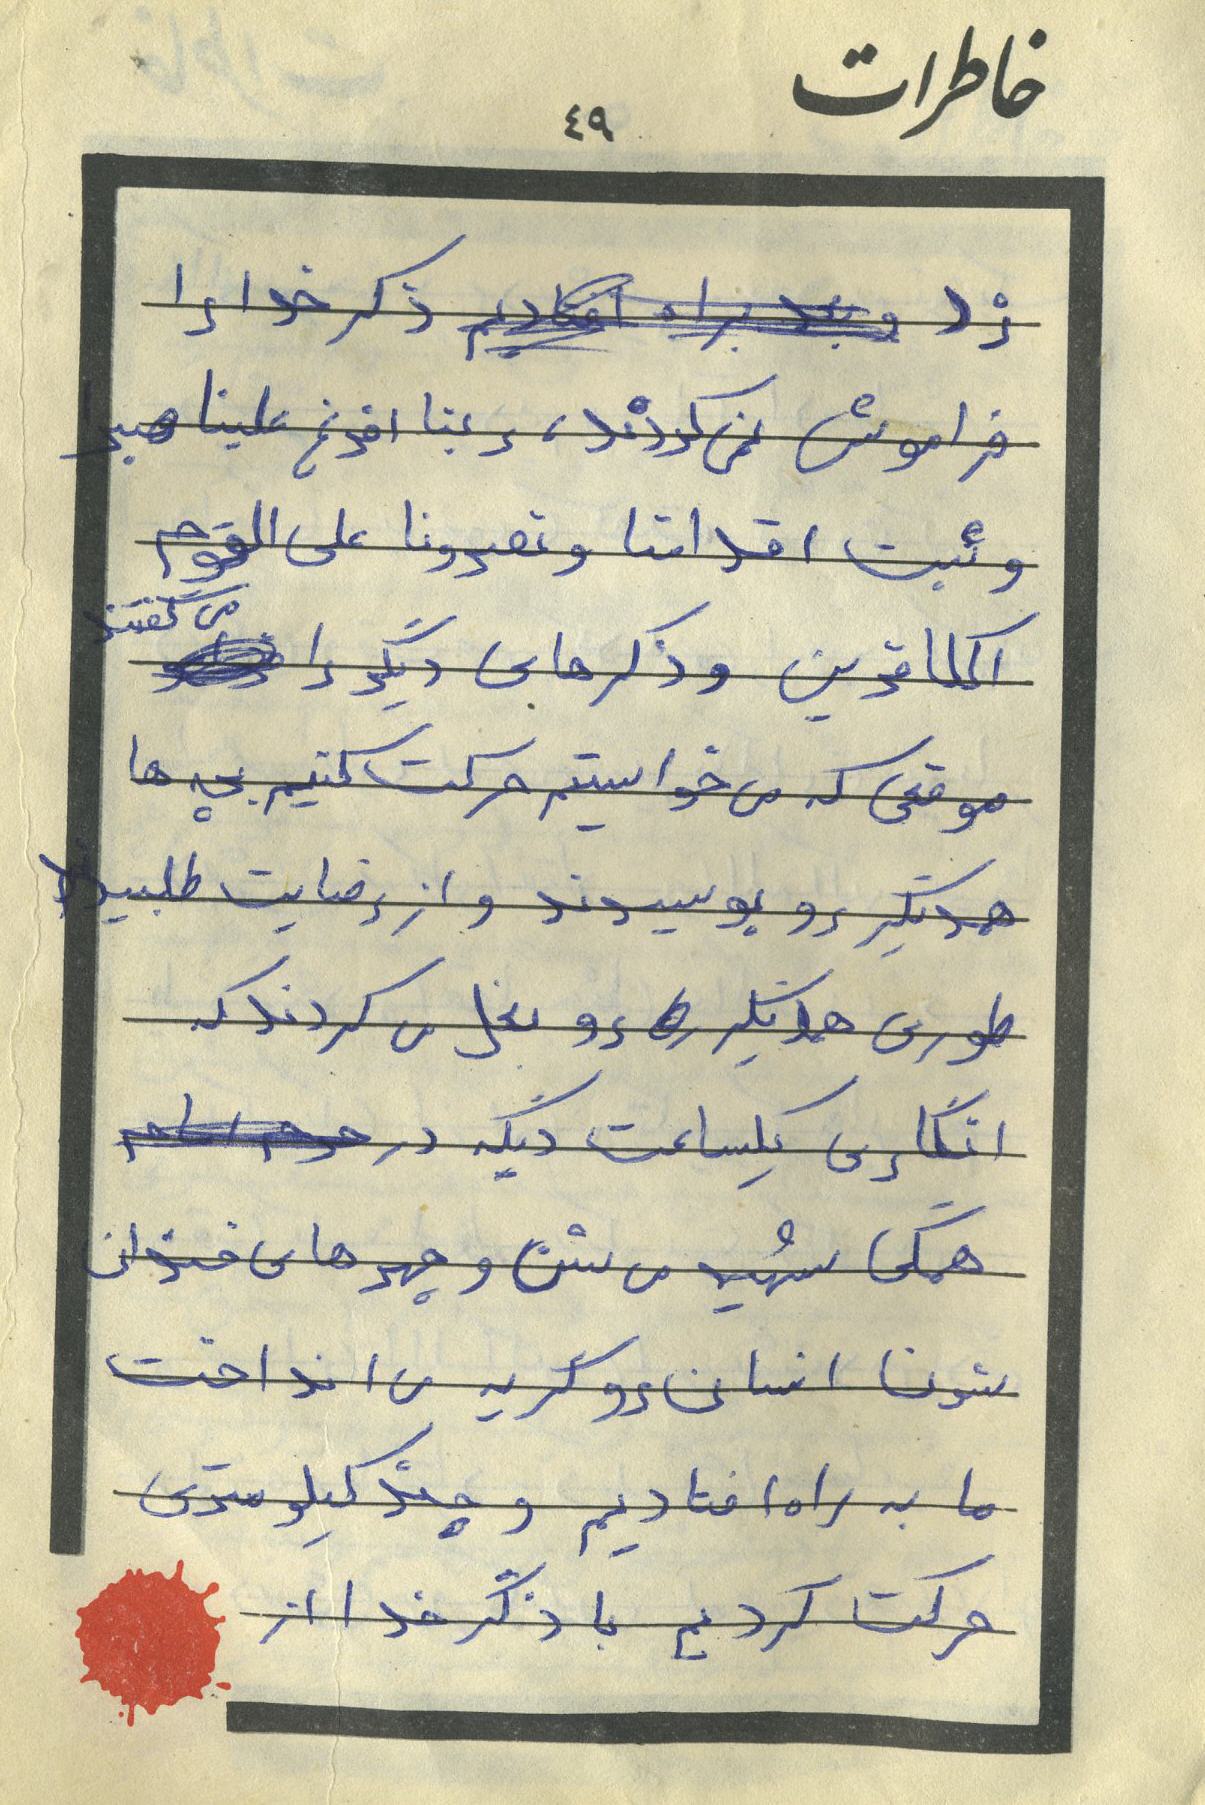 خاطرات
٤٩
زد و بعد براه افتادیم ذکر خدا را
فراموش نمی‌کردند، ربنا افرغ علینا صبرا
و ثبت اقدامنا و نصرونا علی القوم
الکافرین و ذکرهای دیگر را می گفتند
موقعی که می خواستیم حرکت کنیم بچه ها
همدیگر رو بوسیدند و از رضایت طلبیدند
طوری همدیگر رو بغل می کردند که
انگاری یکساعت دیگه در حرم امام
همگی شهید می شن و چهره های خندان
شونا انسان رو گریه می انداخت
ما به راه افتادیم و چند کیلومتری
حرکت کردیم با ذکر خدا از